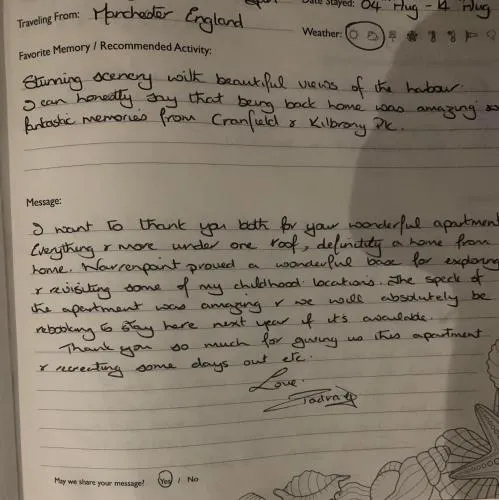 Date Stayed: 04 Aug - 14 Aug
Traveling From: Manchester England
Weather:
Favorite Memory / Recommended Activity:
Stunning scenery with beautiful views of the harbour.
I can honestly say that being back home was amazing so
fantastic memories from Cranfield & Kilbrony Pk.
Message:
I want to thank you both for your wonderful apartment
Everything & more under one roof, definitely a home from
home. Warrenpoint proved a wonderful base for exploring
& revisiting some of my childhood locations. The speck of
the apartment was amazing & we will absolutely be
rebooking to stay here next year if it's available.
Thank you so much for giving us this apartment
& recreating some days out etc.
Love.
May we share your message? Yes / No